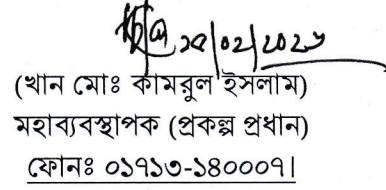 ১৫/০২/২০২৬
(খান মোঃ কামরুল ইসলাম)
মহাব্যবস্থাপক (প্রকল্প প্রধান)
ফোনঃ ০১৭১৩-১৪০০০৭।